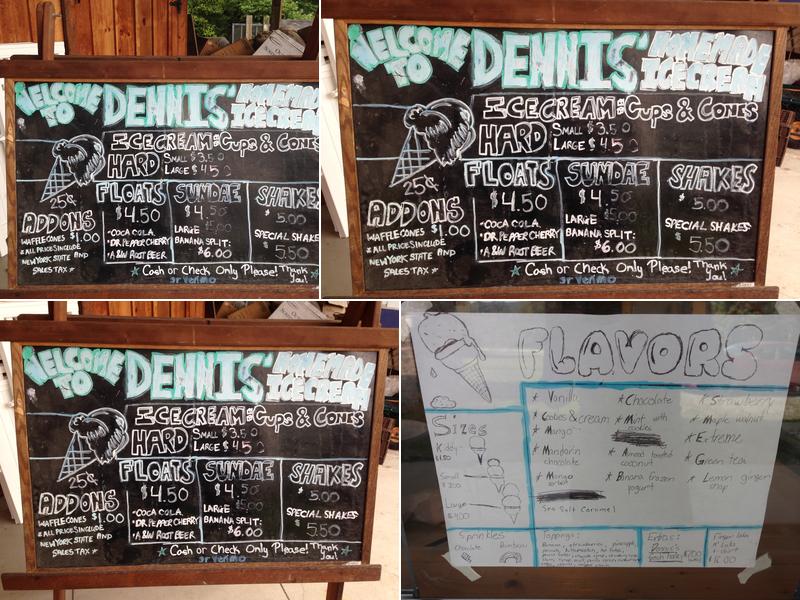 WELCOME TO DENNIS' HOMEMADE ICECREAM
ICECREAM: Cups & Cones
HARD
SMALL $3.50
LARGE $4.50
25¢
ADDONS
WAFFLE CONES $1.00
*ALL PRICES INCLUDE
NEW YORK STATE AND
SALES TAX*
FLOATS
$4.50
•COCA COLA
•DR. PEPPER CHERRY
•A&W ROOT BEER
SUNDAE
$4.50
LARGE $5.00
BANANA SPLIT:
$6.00
SHAKES
$5.00
SPECIAL SHAKES
$5.50
Cash or Check Only Please! Thank You!
or venmo
WELCOME TO DENNIS' HOMEMADE ICECREAM
ICECREAM: Cups & CONES
HARD
SMALL $3.50
LARGE $4.50
25¢
ADDONS
WAFFLE CONES $1.00
*ALL PRICES INCLUDE
NEW YORK STATE AND
SALES TAX*
FLOATS
$4.50
•COCA COLA
•DR. PEPPER CHERRY
•A&W ROOT BEER
SUNDAE
$4.50
LARGE $5.00
BANANA SPLIT:
$6.00
SHAKES
$5.00
SPECIAL SHAKES
$5.50
Cash or Check Only Please! Thank You!
or venmo
WELCOME TO DENNIS' HOMEMADE ICECREAM
ICECREAM: Cups & CONES
HARD
SMALL $3.50
LARGE $4.50
25¢
ADDONS
WAFFLE CONES $1.00
*ALL PRICES INCLUDE
NEW YORK STATE AND
SALES TAX*
FLOATS
$4.50
•COCA COLA
•DR. PEPPER CHERRY
•A&W ROOT BEER
SUNDAE
$4.50
LARGE $5.00
BANANA SPLIT:
$6.00
SHAKES
$5.00
SPECIAL SHAKES
$5.50
Cash or Check Only Please! Thank You!
or venmo
FLAVORS
* Vanilla
* Cookies & cream
* Mango
* Mandarin chocolate
* Mango sorbet
Sea Salt Caramel
* Chocolate
* Mint with cookies
* Almond toasted coconut
* Banana frozen yogurt
* Strawberry
* Maple walnut
* Extreme
* Green tea
* Lemon ginger snap
Sizes
Kiddy
Small
Large
$4.00
Sprinkles
Chocolate
Rainbow
Toppings:
Extras:
Dennis's
Finger lakes
t-shirt